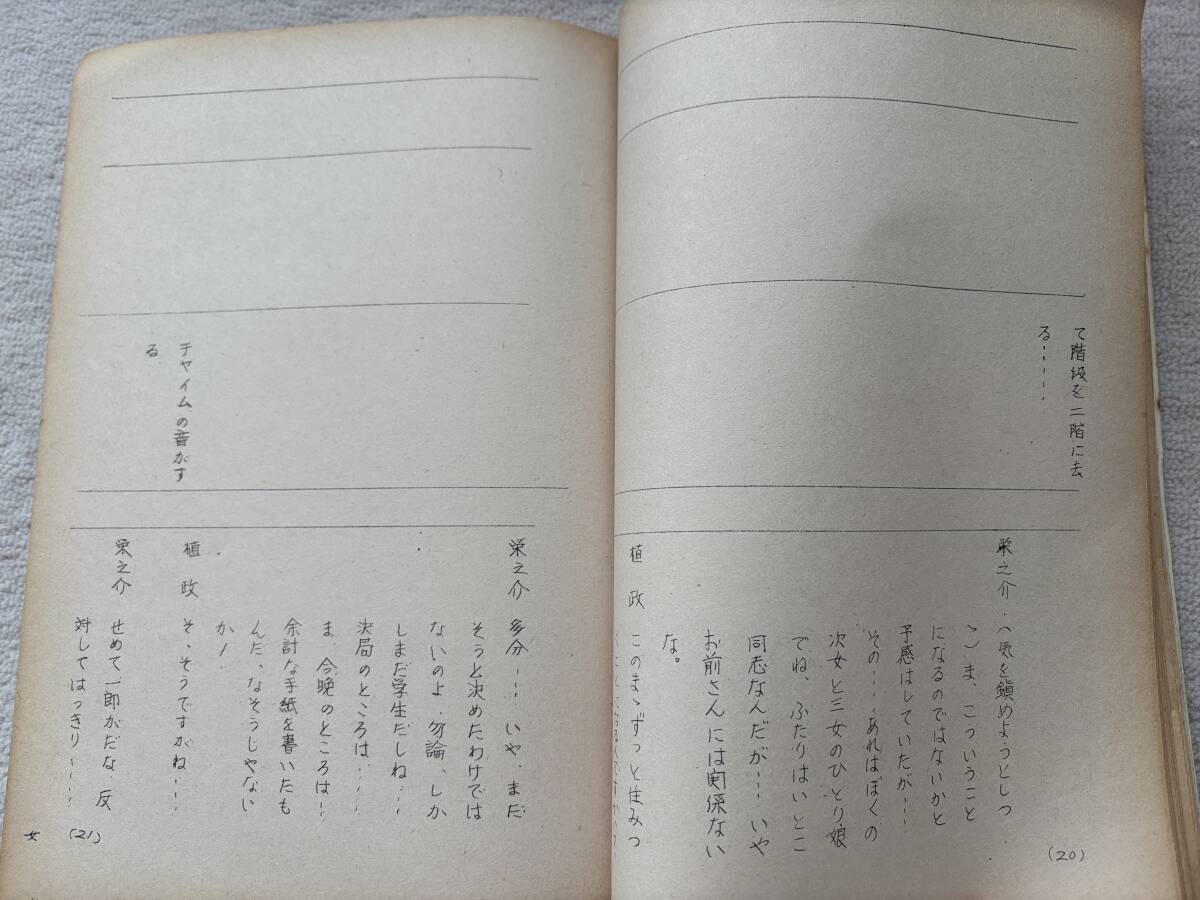 て階段を二階に去
る……
栄之介 (気を鎮めようとしつ
ゝ) ま、こういうこと
になるのではないかと
予感はしていたが……
その……あれはぼくの
次女と三女のひとり娘
でね、ふたりはいとこ
同志なんだが……いや
お前さんには関係ない
な。
植政 このまゝずっと住みつ
(20)
栄之介 多分……いや、まだ
そうと決めたわけでは
ないのよ、勿論、しか
しまだ学生だしね……
決局のところは……
ま、今晩のところは…
余計な手紙を書いたも
んだ、なそうじゃない
か!
植政 そ、そうですがね……
チャイムの音がす
る
栄之介 せめて一郎がだな、反
対してはっきり……
(21)
女